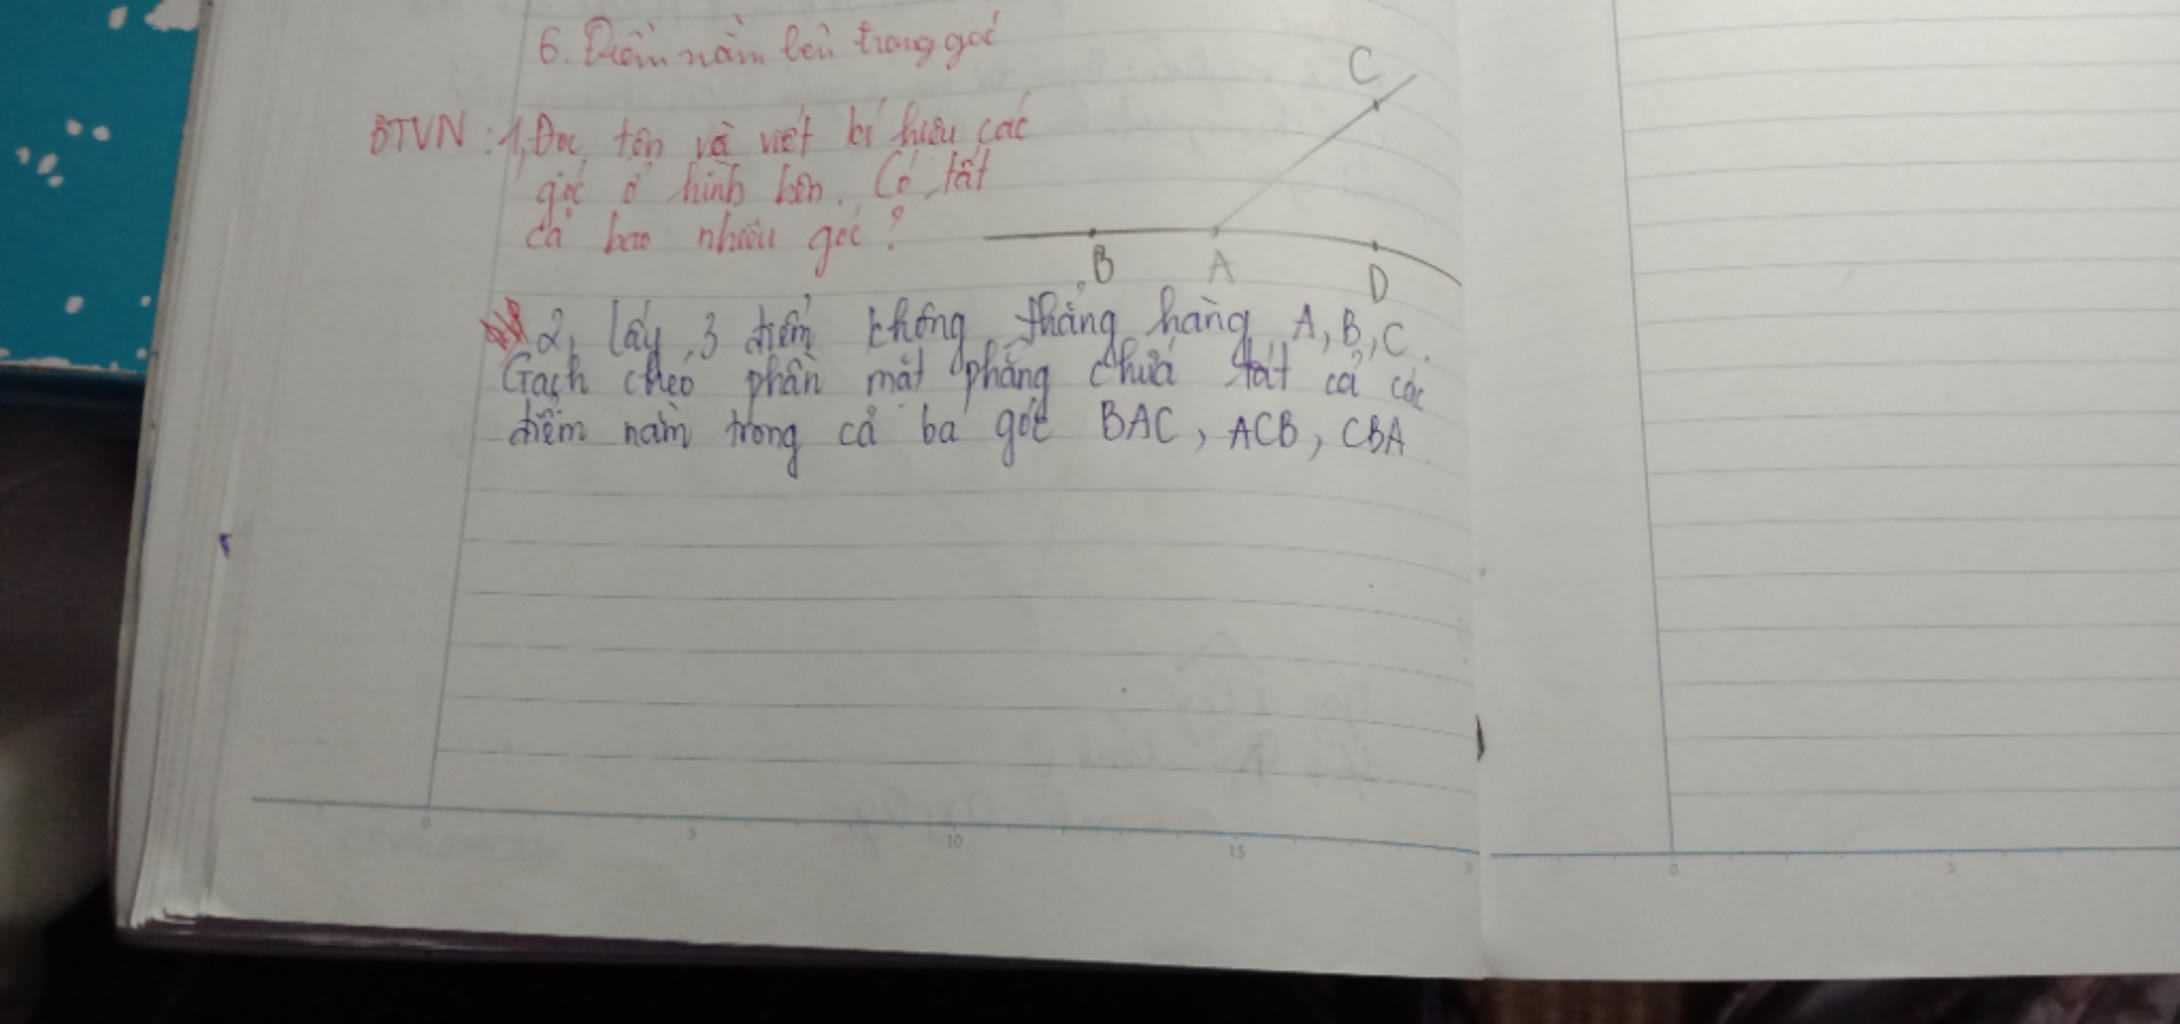 6. Điểm nằm bên trong góc
C
BTVN: 1, Đọc tên và viết kí hiệu các
góc ở hình bên. Có tất
cả bao nhiêu góc?
B A D
2, Lấy 3 điểm không thẳng hàng A, B, C.
Gạch chéo phần mặt phẳng chứa tất cả các
điểm nằm trong cả ba góc BAC, ACB, CBA
0 5 10 15
0 5